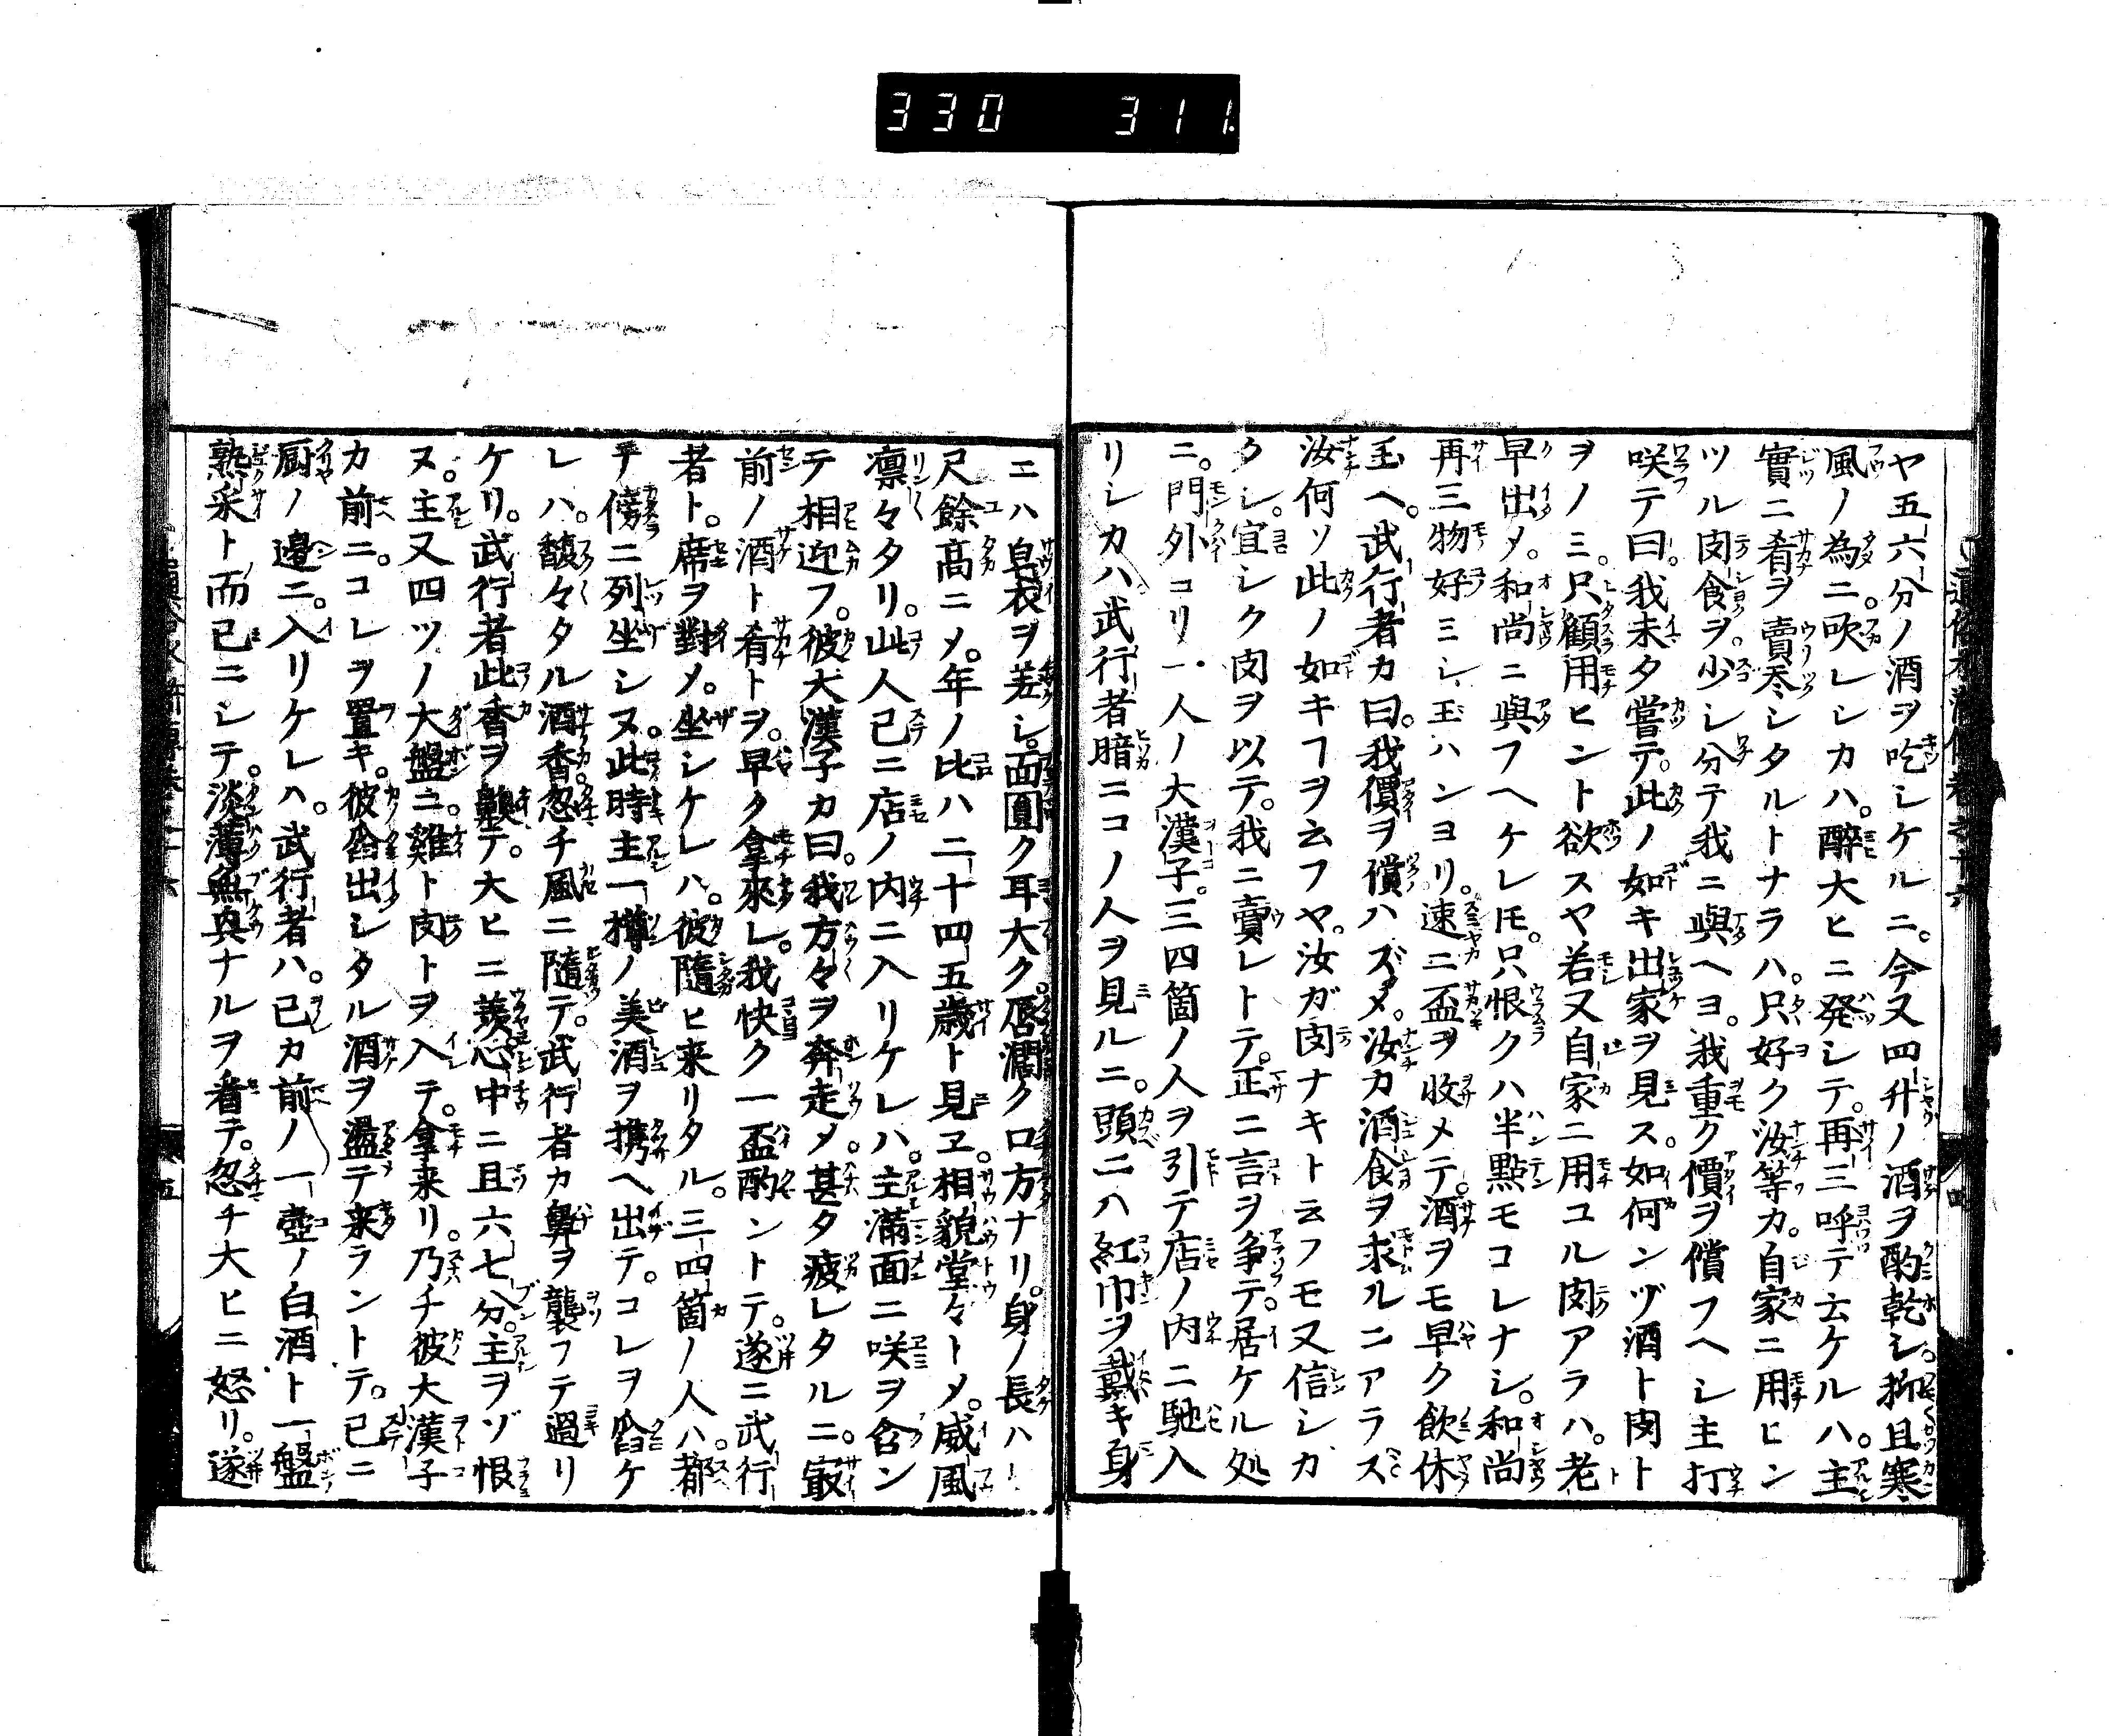 330 311
ヤ五六分ノ酒ヲ吃シケルニ。今又四升ノ酒ヲ酌乾シ。抑且寒
風ノ為ニ。吹レシカハ。醉大ヒニ発シテ。再三呼テ云ケルハ。主
實ニ肴ヲ賣尽シタルトナラハ。只好ク汝等カ。自家ニ用ヒン
ツル肉食ヲ。少シ分テ我ニ與ヘヨ。我重ク價ヲ償フヘシ主打
咲テ曰。我未タ嘗テ。此ノ如キ出家ヲ見ス。如何ンゾ酒ト肉ト
ヲノミ。只顧用ヒント欲スヤ若又自家ニ用ユル肉アラハ。老
早出メ。和尚ニ與フヘケレ𪜈。只恨クハ半點モコレナシ。和尚
再三物好ミシ玉ハンヨリ。速ニ盃ヲ收メテ。酒ヲモ早ク飲休
玉ヘ。武行者カ曰。我價ヲ償ハズメ。汝カ酒食ヲ求ルニアラス
汝何ソ此ノ如キヿヲ云フヤ。汝ガ肉ナキト云フモ又信シカ
タシ。宜シク肉ヲ以テ。我ニ賣レトテ。正ニ言ヲ争テ。居ケル処
ニ。門外ヨリ一人ノ大漢子。三四箇ノ人ヲ引テ店ノ内ニ馳入
リシカハ武行者暗ニコノ人ヲ見ルニ。頭ニハ紅巾ヲ戴キ身
ニハ皂衣ヲ差シ。面圓ク耳大ク。唇濶ク口方ナリ。身ノ長ハ
尺餘高ニメ。年ノ比ハ二十四五歳ト見ヱ。相貌堂々トメ。威風
凛々タリ。此人已ニ店ノ内ニ入リケレハ。主滿面ニ咲ヲ含ン
テ相迎フ。彼大漢子カ曰。我方々ヲ奔走メ。甚タ疲レタルニ。最
前ノ酒ト肴トヲ。早ク拿來レ。我快ク一盃酌ントテ。遂ニ武行
者ト。席ヲ對メ。坐シケレハ。彼隨ヒ来リタル。三四箇ノ人ハ。都
テ傍ニ列坐シヌ。此時主一樽ノ美酒ヲ携ヘ出テ。コレヲ斟ケ
レハ。馥々タル酒香。忽チ風ニ隨テ。武行者カ鼻ヲ襲フテ過リ
ケリ。武行者此香ヲ齅テ。大ヒニ羨心中ニ且六七分。主ヲゾ恨
ヌ。主又四ツノ大盤ニ。雞ト肉トヲ入テ。拿来リ。乃チ彼大漢子
カ前ニ。コレヲ置キ。彼斟出シタル酒ヲ盪テ来ラントテ。已ニ
厨ノ邉ニ。入リケレハ。武行者ハ。己カ前ノ一壺ノ白酒ト一盤
熟采ト而已ニシテ。淡薄無興ナルヲ看テ。忽チ大ヒニ怒リ。遂